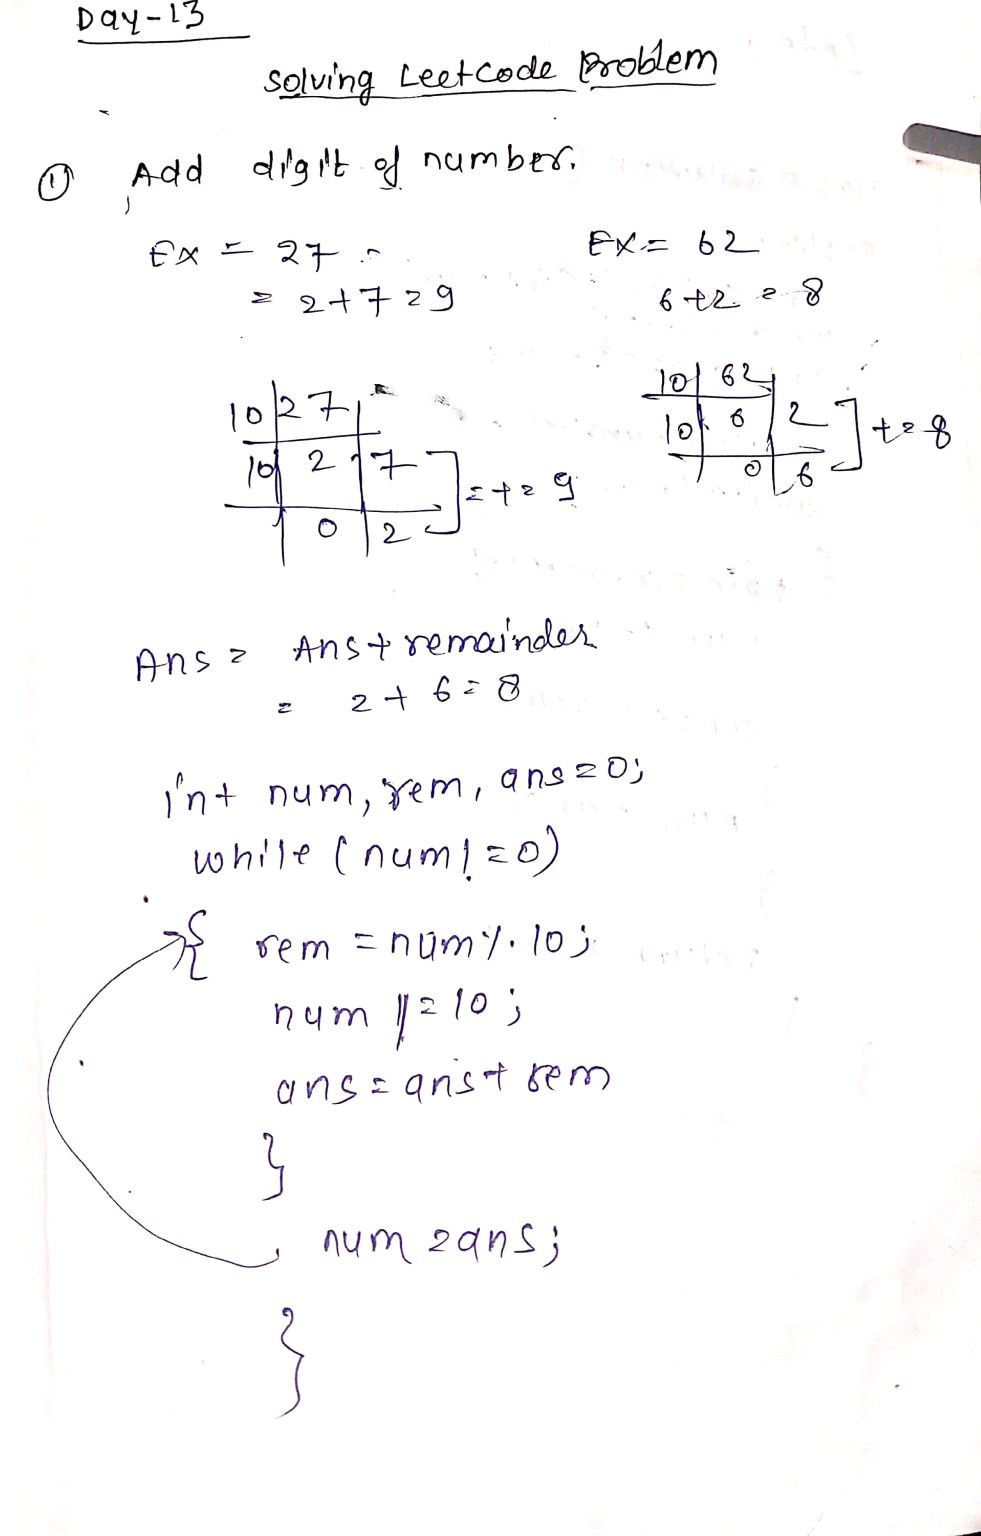 Day-13
Solving Leetcode Problem
① Add digit of number.
Ex = 27
= 2+7=9
Ex = 62
6+2 = 8
10 27
10 2 7
0 2
=+= 9
10 62
10 6 2
0 6
+= 8
Ans = Ans + remainder
= 2 + 6 = 8
int num, rem, ans=0;
while (num!=0)
{ rem = num%10;
num /= 10;
ans = ans + rem
}
num = ans;
}